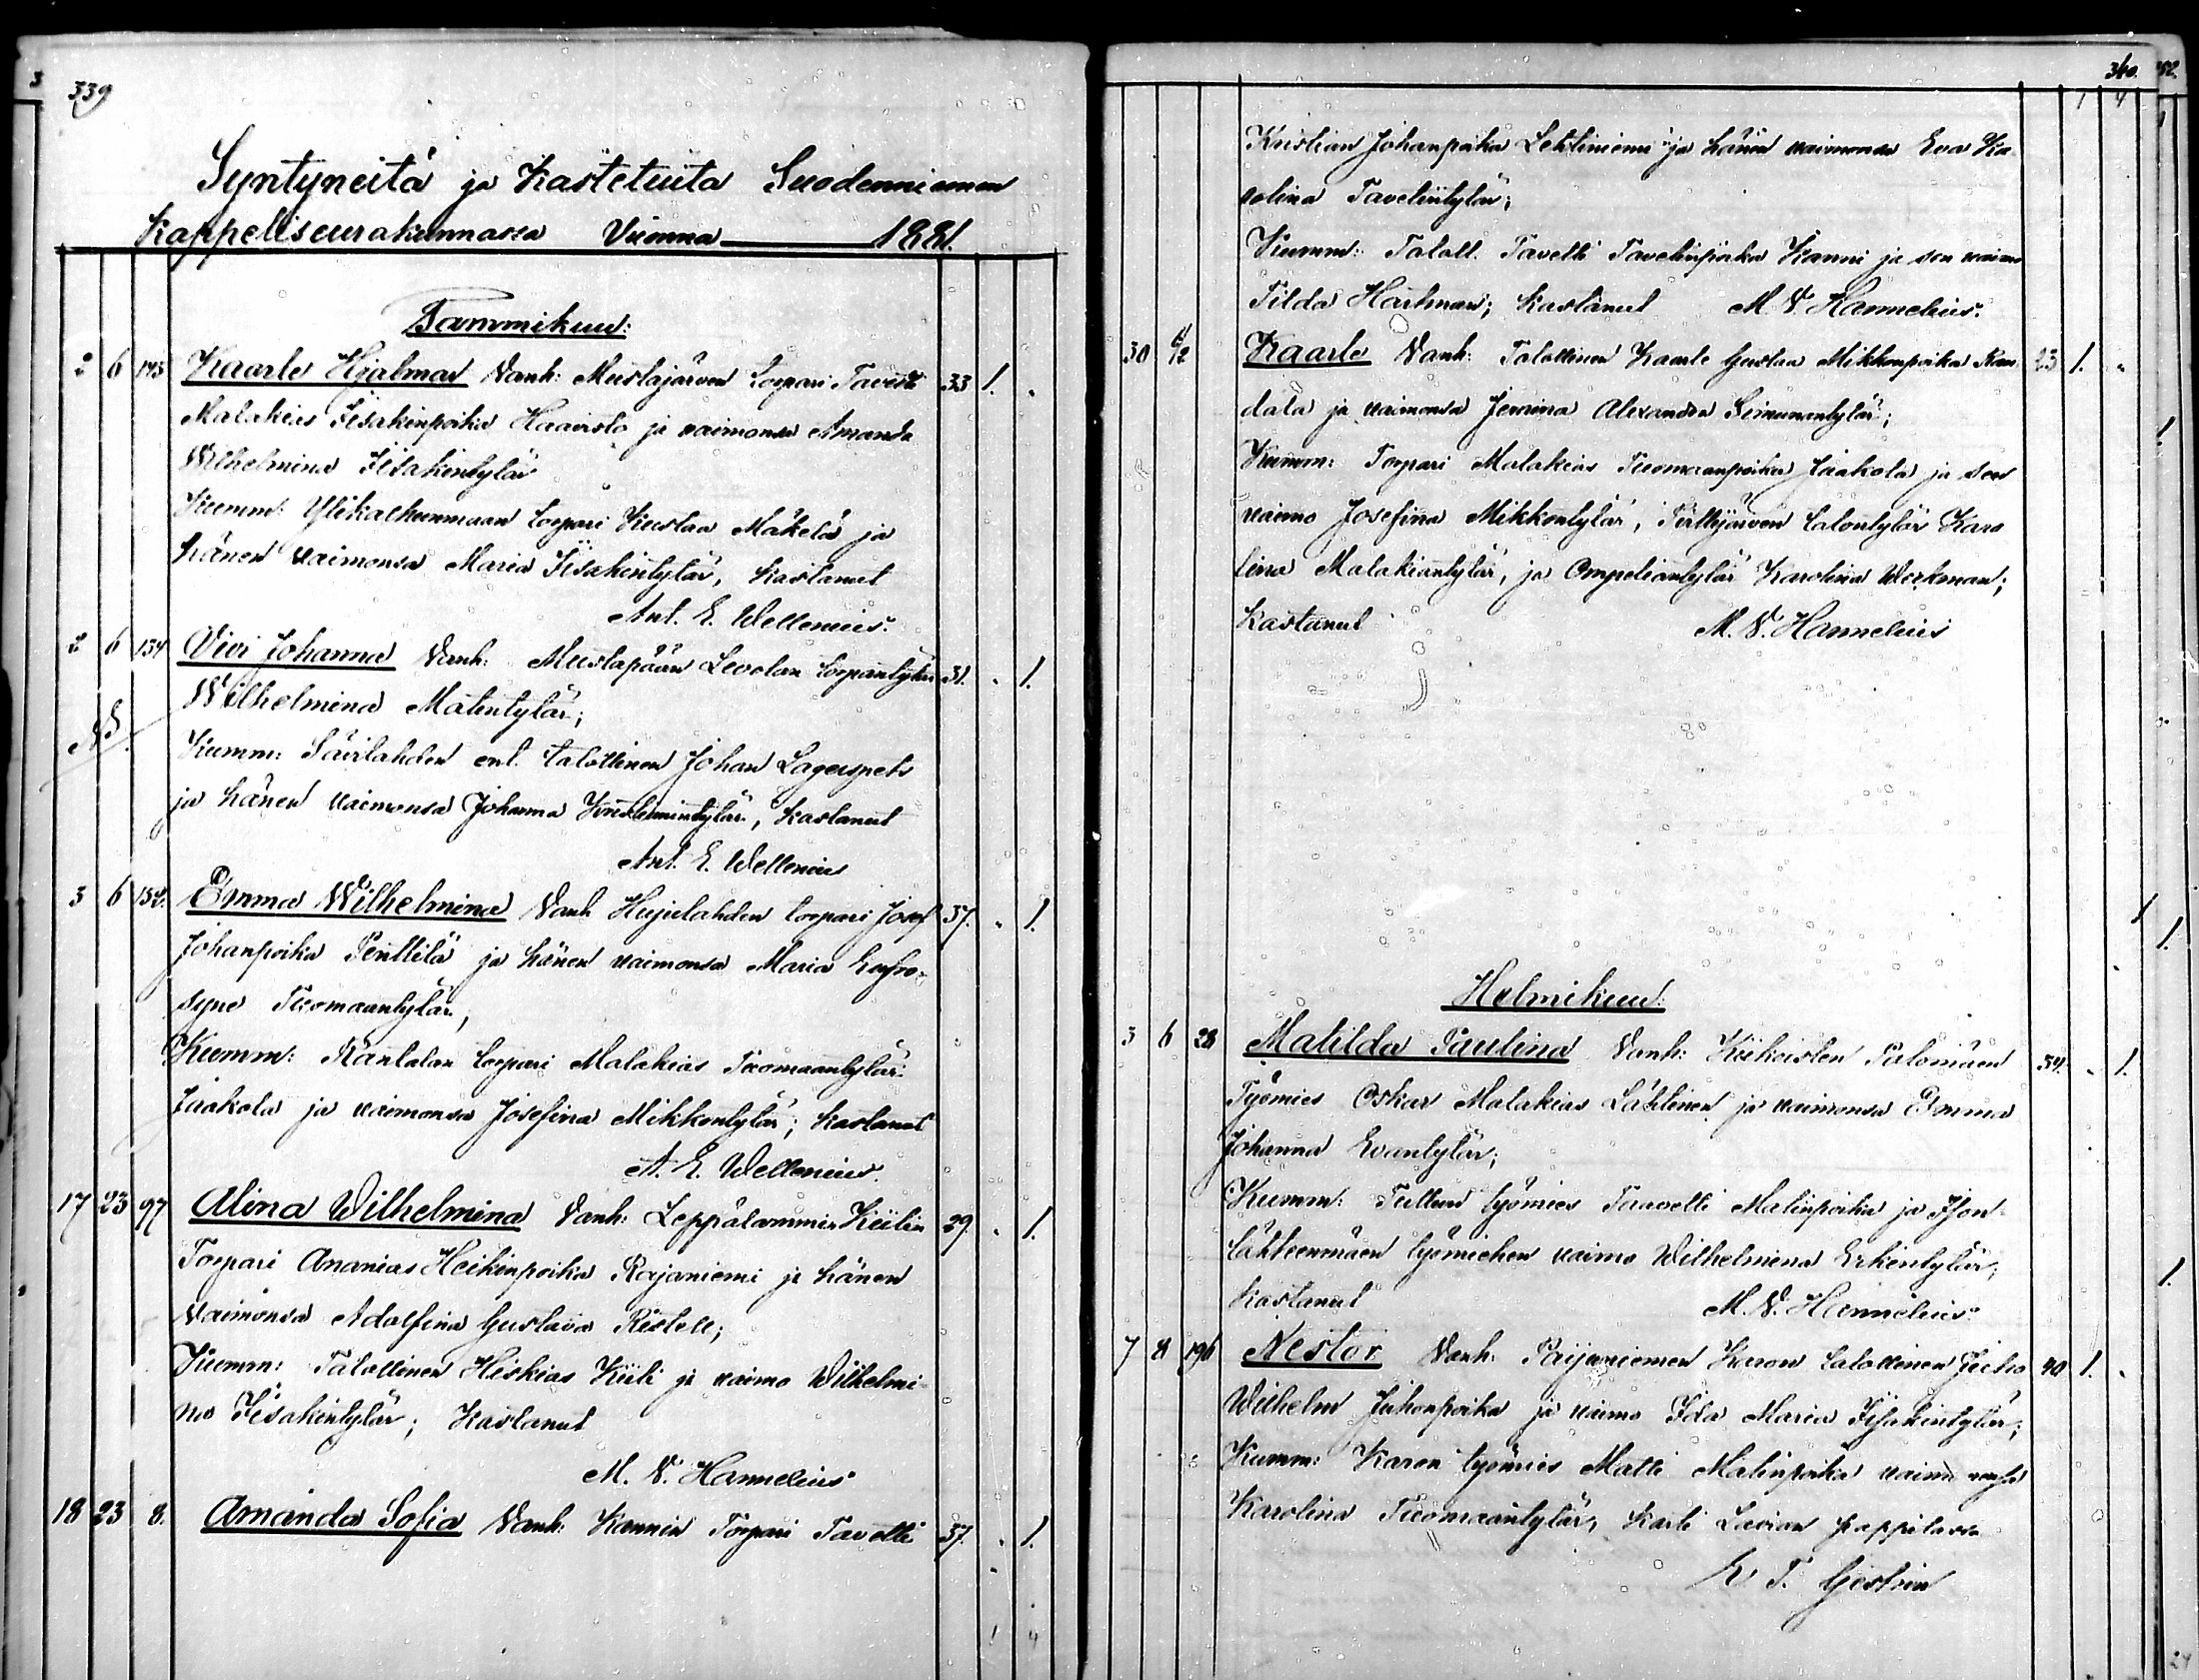 339
Syntyneitä ja Kastetuita Suodenniemen
Kappeliseurakunnassa Vuonna 1881.
Tammikuu:
2 6 143 Kaarle Hjalmar Vanh: Mustajärven torpari Tavetti 33 1.
Malakias Iisakinpoika Haavisto ja vaimonsa Amanda
Wilhelmina Iisakintytär
Kumm: torpari Kustaa Mäkelä ja
hänen vaimonsa Maria Iisakintytär, kastanut
Ant. E. Wellenius.
2 6 134 Vivi Johanna Vanh: Mustapään Levolan torpantytär 31. 1.
Wilhelmina Matintytär;
Kumm: Sävilahden ent. talollinen Johan Lagerspets
ja hänen vaimonsa Johanna kastanut
Ant. E. Wellenius
3 6 152. Emma Wilhelmina Vanh Hujulahden torpari Josef 37. 1.
Johanpoika Penttilä ja hänen vaimonsa Maria Eufro-
syne Tuomaantytär,
Kumm: Rantalan torpari Malakias Tuomaantytär
Jaakola ja vaimonsa Josefina Mikkontytär; kastanut
A. E. Wellenius.
17 23 97 Alina Wilhelmina Vanh: Leppälammin Kiilin 29. 1.
Torpari Ananias Heikinpoika Rajaniemi ja hänen
vaimonsa Adolfina Gustava
Kumm: Talollinen Hiskias Kiili ja vaimo Wilhelmi-
na Iisakintytär; Kastanut
M. V. Hannelius
18 23 8. Amanda Sofia Vanh: Kannin Torpari Tavetti 37. 1.
1 4
340.
1 4
Kristian Johanpoika Lehtiniemi ja hänen vaimonsa Eva Ka-
rolina Tavetintytär;
Kumm: Taloll. Tavetti Tavetinpoika Kanni ja sen vaimo
Tilda Hartman; kastanut M. V. Hannelius.
30 4/2 Kaarle Vanh: Talollinen Kaarle Gustaa Mikkonpoika 23 1.
ja vaimonsa Jemina Alexandra Simunantytär;
Kumm: Torpari Malakias Tuomaanpoika Jaakola ja sen
vaimo Josefina Mikkontytär, Pirttijärven talontytär Karo
lina Malakiantytär, ja Ompeliantytär Karolina Werkman;
kastanut M. V. Hannelius
Helmikuu:
3 6 28 Matilda Paulina Vanh: Kiikoisten Palomäen 34. 1.
Työmies Oskar Malakias Lähtinen ja vaimonsa Emma
Johanna Evantytär;
Kumm: työmies Taavetti Matinpoika ja Ison-
lähteenmäen työmiehen vaimo Wilhelmina Erkintytär;
kastanut M. V. Hannelius.
7 8 196 Nestor Vanh: Paijaniemen Karon talollinen Juho 40 1.
Wilhelm Juhonpoika ja vaimo Ida Maria Iisakintytär;
Kumm: Karon työmies Matti Matinpoika vaimo
Karolina Tuomaantytär, kasti Lavian pappilassa
K T. Gestrin